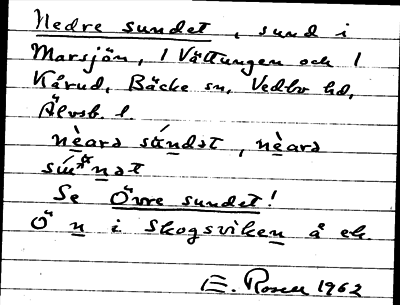 Nedre sundet, sund i
Marsjön, 1 Vättungen och 1
Kårud, Bäcke sn, Vedbo hd,
Älvsb. l.
nèarə súndət, nèarə
sundət
Se Övre sundet!
Ö n i Skogsviken å ek.
E. Rosell 1962